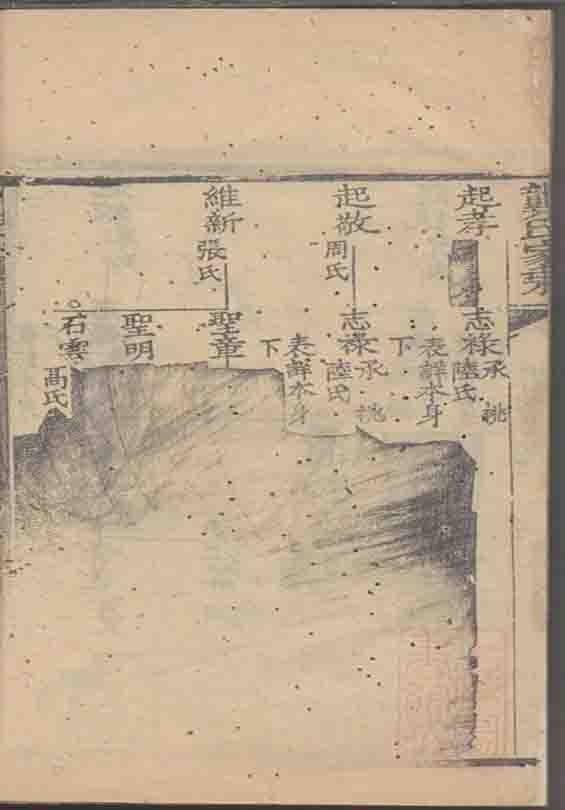 龔氏家乘
起孝
志祿 承祧
陸氏
表詳本身
下
起敬
周氏
志祿 承祧
陸氏
表詳本身
下
維新
張氏
聖童
聖明
石雲
高氏